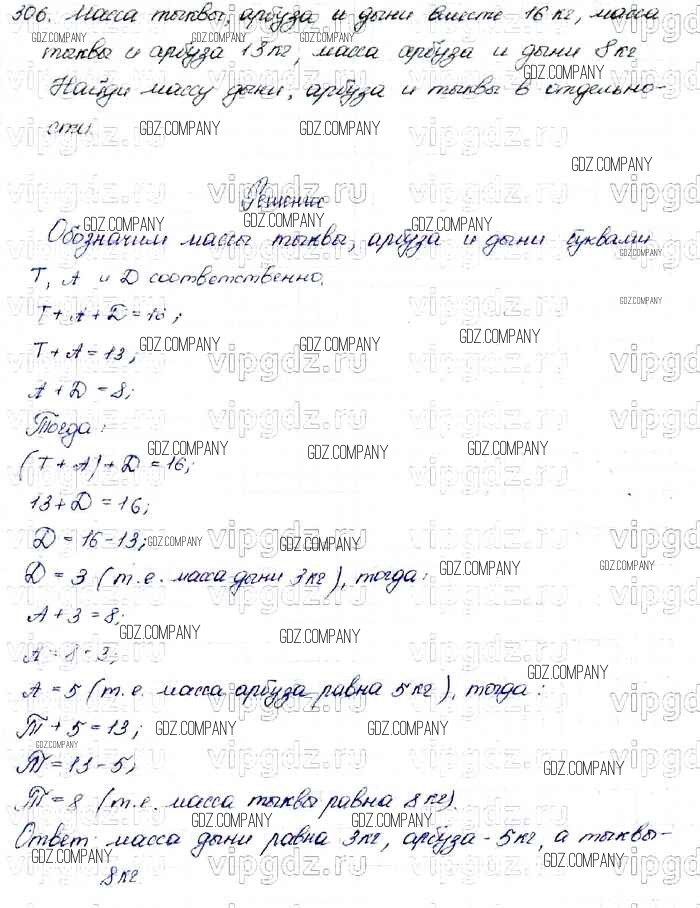 306. Масса тыквы, арбуза и дыни вместе 16 кг, масса
тыквы и арбуза 13 кг, масса арбуза и дыни 8 кг
Найди массу дыни, арбуза и тыквы в отдельно-
сти.
Решение
Обозначим массы тыквы, арбуза и дыни буквами
Т, А и D соответственно.
Т + А + D = 16;
Т + А = 13;
А + D = 8;
Тогда:
(Т + А) + D = 16;
13 + D = 16;
D = 16 - 13;
D = 3 (т.е. масса дыни 3 кг), тогда:
А + 3 = 8;
А = 8 - 3;
А = 5 (т.е. масса арбуза равна 5 кг), тогда:
Т + 5 = 13;
Т = 13 - 5;
Т = 8 (т.е. масса тыквы равна 8 кг).
Ответ: масса дыни равна 3 кг, арбуза - 5 кг, а тыквы -
8 кг.
GDZ.COMPANY
vipgdz.ru